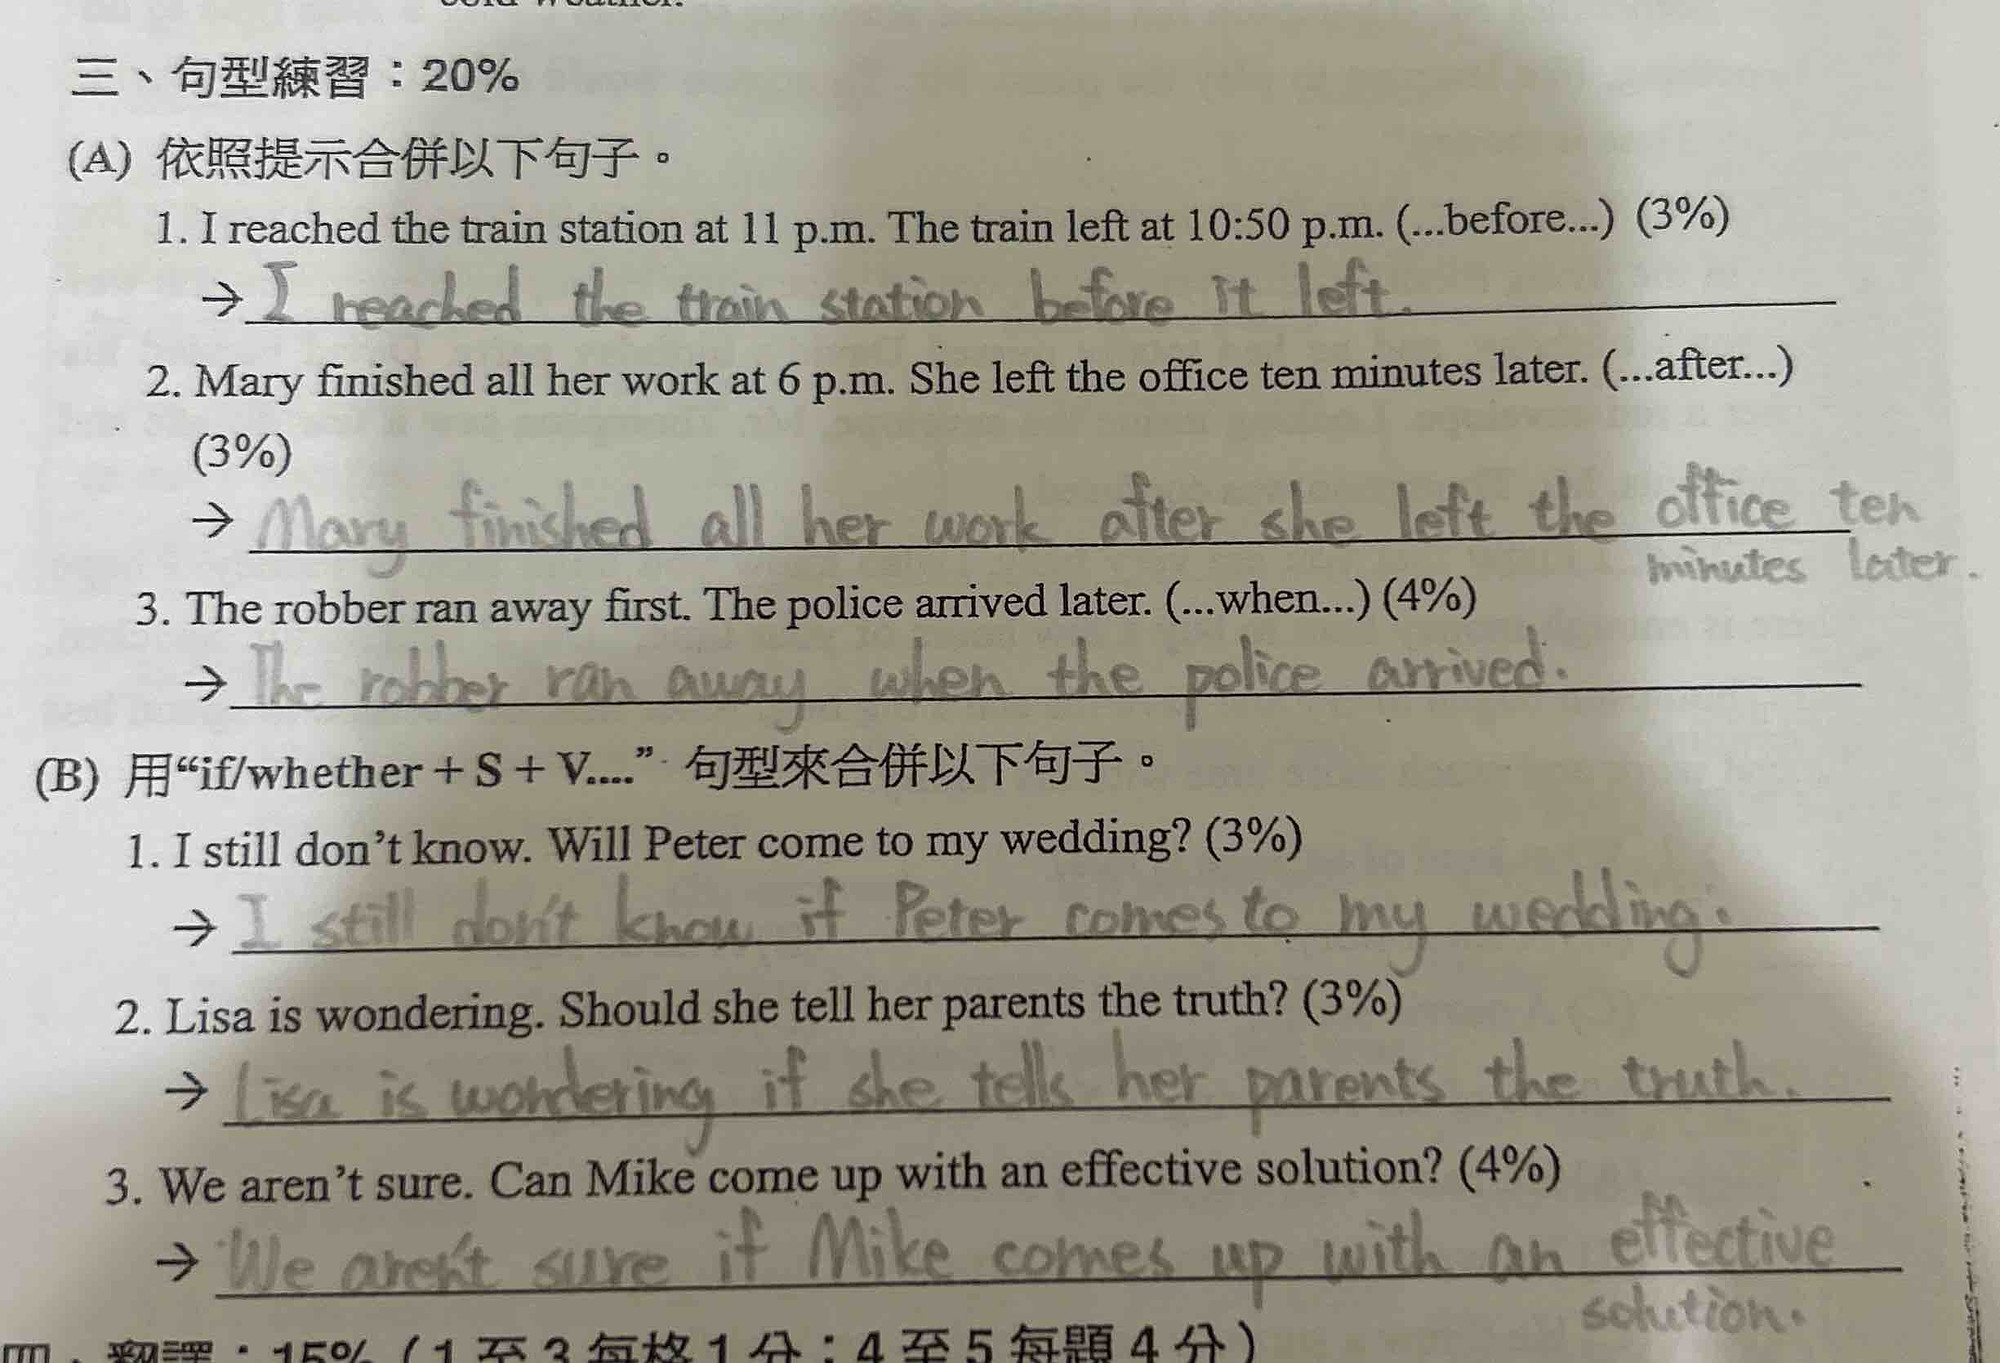 三、句型練習：20%
(A) 依照提示合併以下句子。
1. I reached the train station at 11 p.m. The train left at 10:50 p.m. (...before...) (3%)
→ I reached the train station before it left.
2. Mary finished all her work at 6 p.m. She left the office ten minutes later. (...after...)
(3%)
→ Mary finished all her work after she left the office ten
minutes later.
3. The robber ran away first. The police arrived later. (...when...) (4%)
→ The robber ran away when the police arrived.
(B) 用“if/whether + S + V....” 句型來合併以下句子。
1. I still don’t know. Will Peter come to my wedding? (3%)
→ I still don't know if Peter comes to my wedding.
2. Lisa is wondering. Should she tell her parents the truth? (3%)
→ Lisa is wondering if she tells her parents the truth.
3. We aren’t sure. Can Mike come up with an effective solution? (4%)
→ We aren't sure if Mike comes up with an effective
solution.
四、翻譯：15%（1 至 3 每格 1 分；4 至 5 每題 4 分）